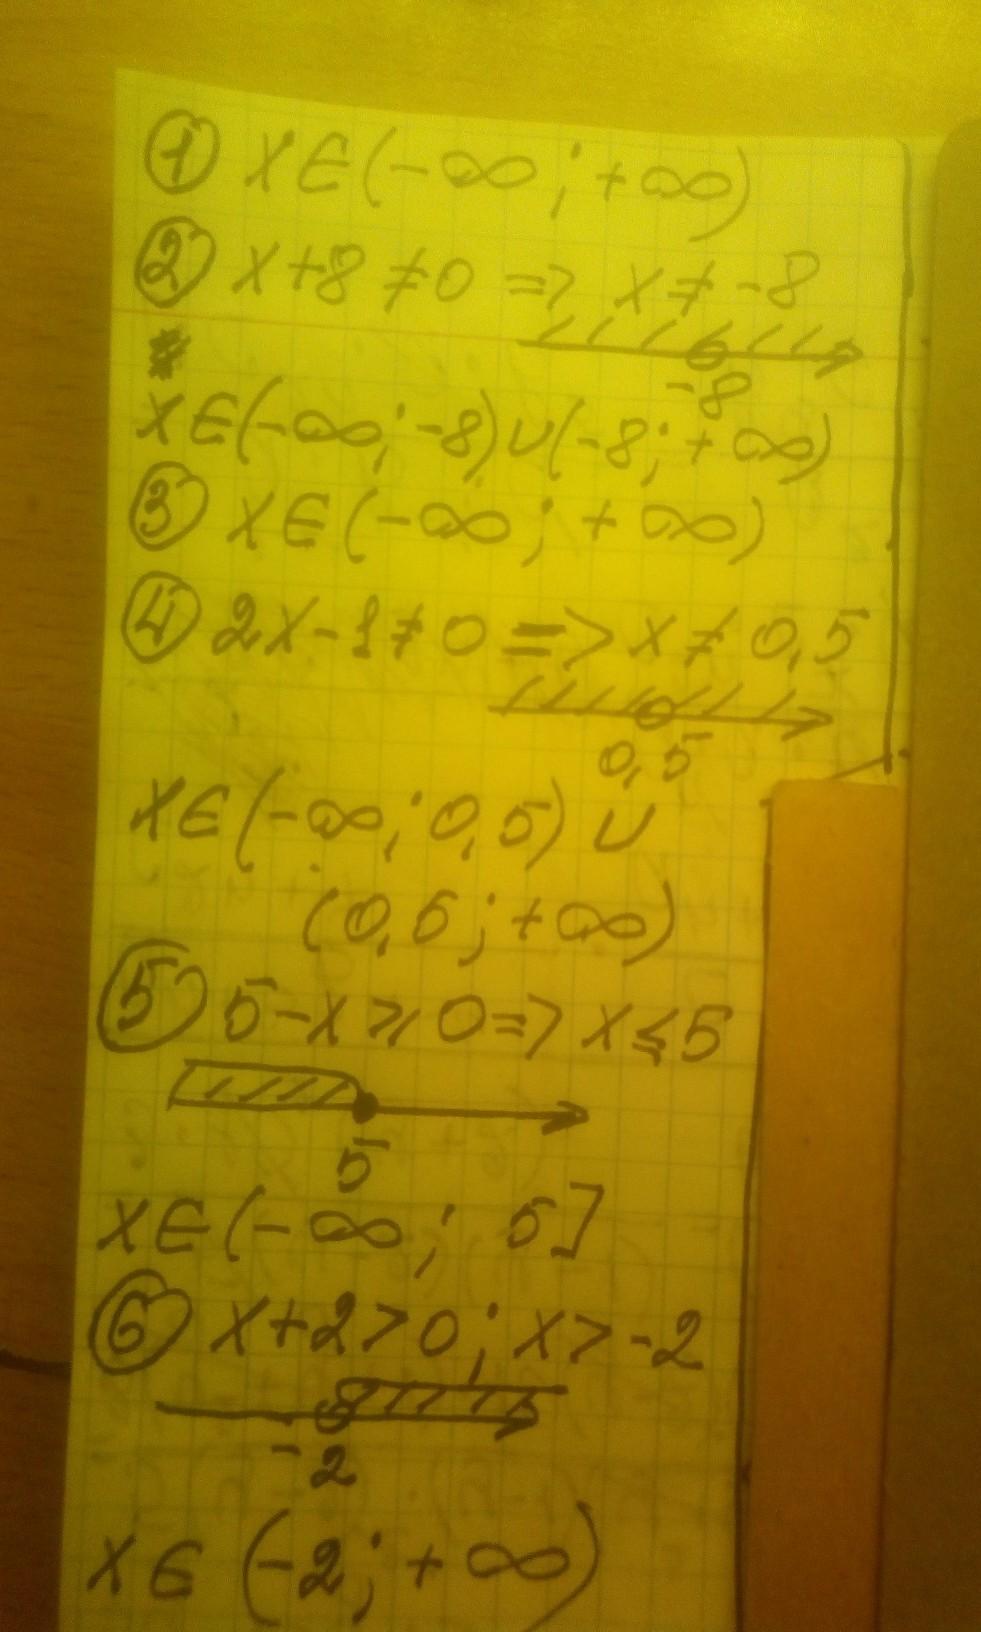 ① x∈(-∞; +∞)
② x+8≠0 => x≠-8
-8
x∈(-∞; -8)∪(-8; +∞)
③ x∈(-∞; +∞)
④ 2x-1≠0 => x≠0,5
0,5
x∈(-∞; 0,5)∪
(0,5; +∞)
⑤ 5-x⩾0 => x⩽5
5
x∈(-∞; 5]
⑥ x+2>0; x>-2
-2
x∈(-2; +∞)